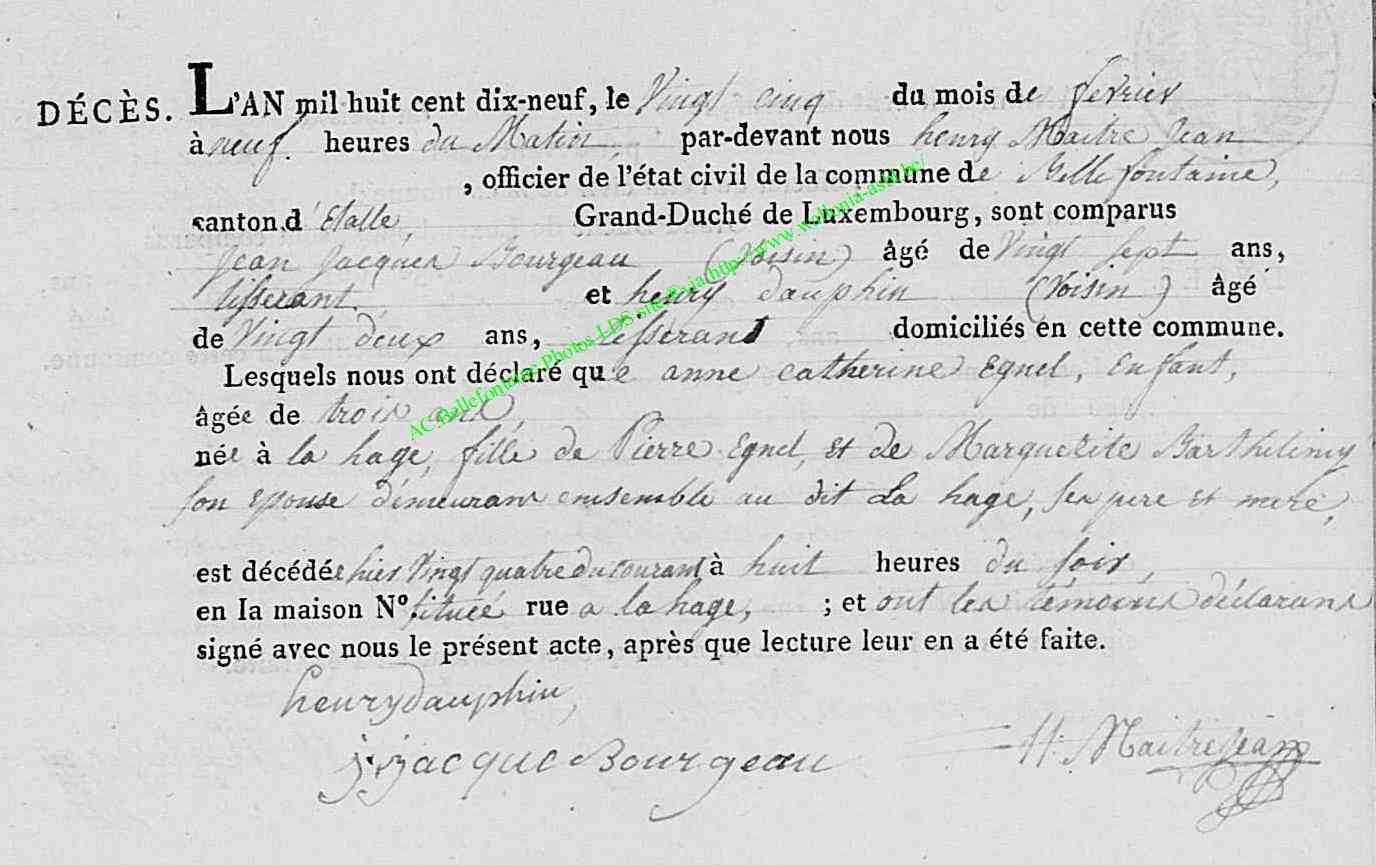 DÉCÈS. L'AN mil huit cent dix-neuf, le Vingt cinq du mois de fevrier
à neuf. heures du Matin, par-devant nous henry Maitre Jean
, officier de l'état civil de la commune de Bellefontaine,
canton d'Etalle, Grand-Duché de Luxembourg, sont comparus
Jean Jacques Bourgeau (Voisin) âgé de Vingt sept ans,
tisserant. et henry dauphin (Voisin) âgé
de Vingt deux ans, tisserant domiciliés en cette commune.
Lesquels nous ont déclaré que anne catherine Egnel, Enfant,
âgée de trois ans,
née à la hage, fille de Pierre Egnel, et de Marguerite Barthelimy
son epouse demeurans ensemble au dit La hage, ses pere et mere,
est décédée hier Vingt quatre du courant à huit heures du soir,
en la maison Nº située rue a la hage, ; et ont les témoins déclarans
signé avec nous le présent acte, après que lecture leur en a été faite.
henry dauphin,
j:jacque Bourgeau
H: Maitrejean
AC Bellefontaine Photos LDS site Raja http://www.wallonia-asbl.be/